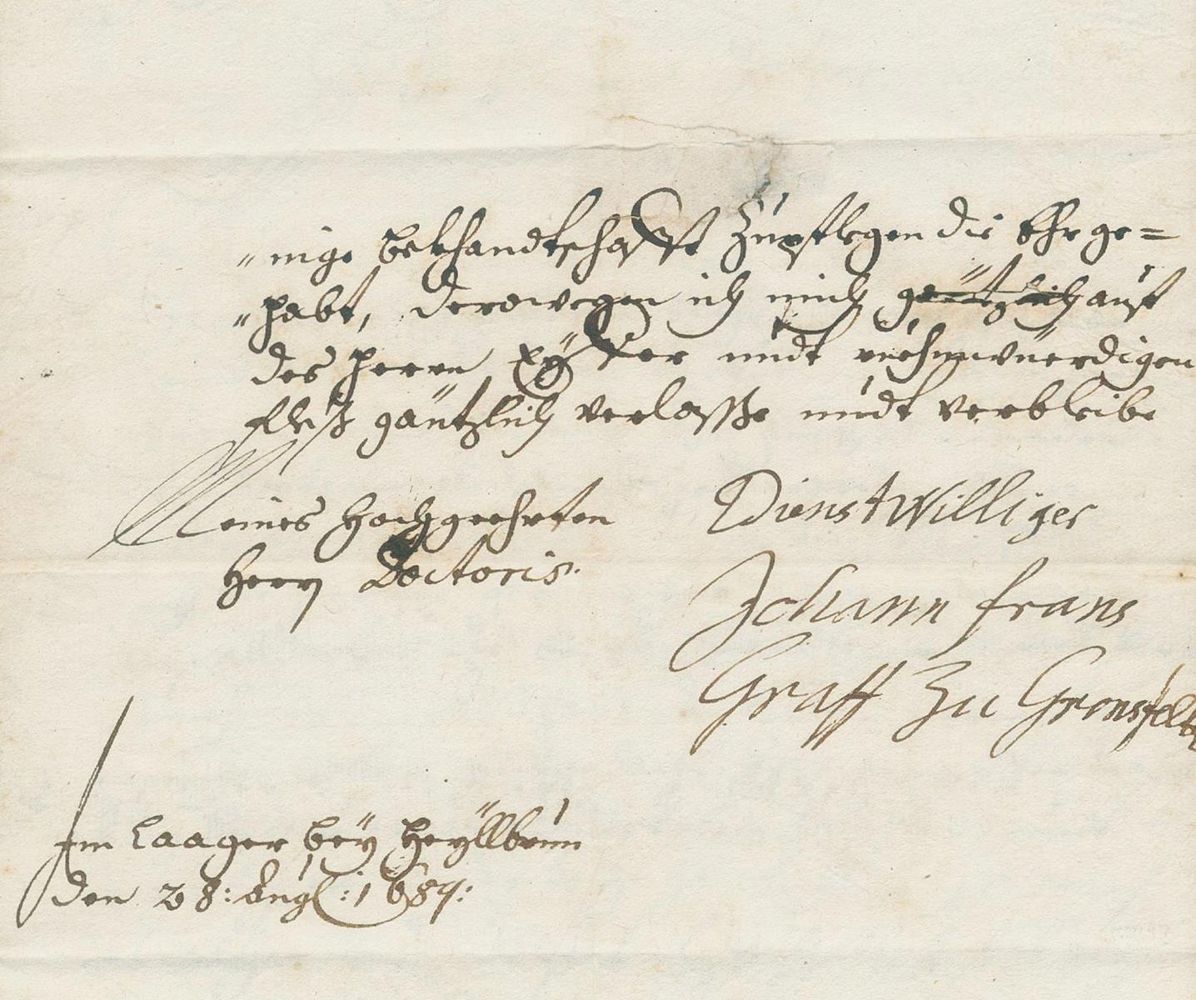 "nige bekhandtschafft zu pflegen die Ehr ge=
"habt, derowegen ich mich gäntzlich auff
des Herrn Eyffer undt ruhmwürdigen
fleiß gäntzlich verlasse undt verbleibe
Meines Hochgeehrten
Herrn Doctoris.
DienstWilliger
Johann frans
Graff Zu Gronsfeldt
Im Laager bey Heyllbrun
den 28: Aug: 1689: